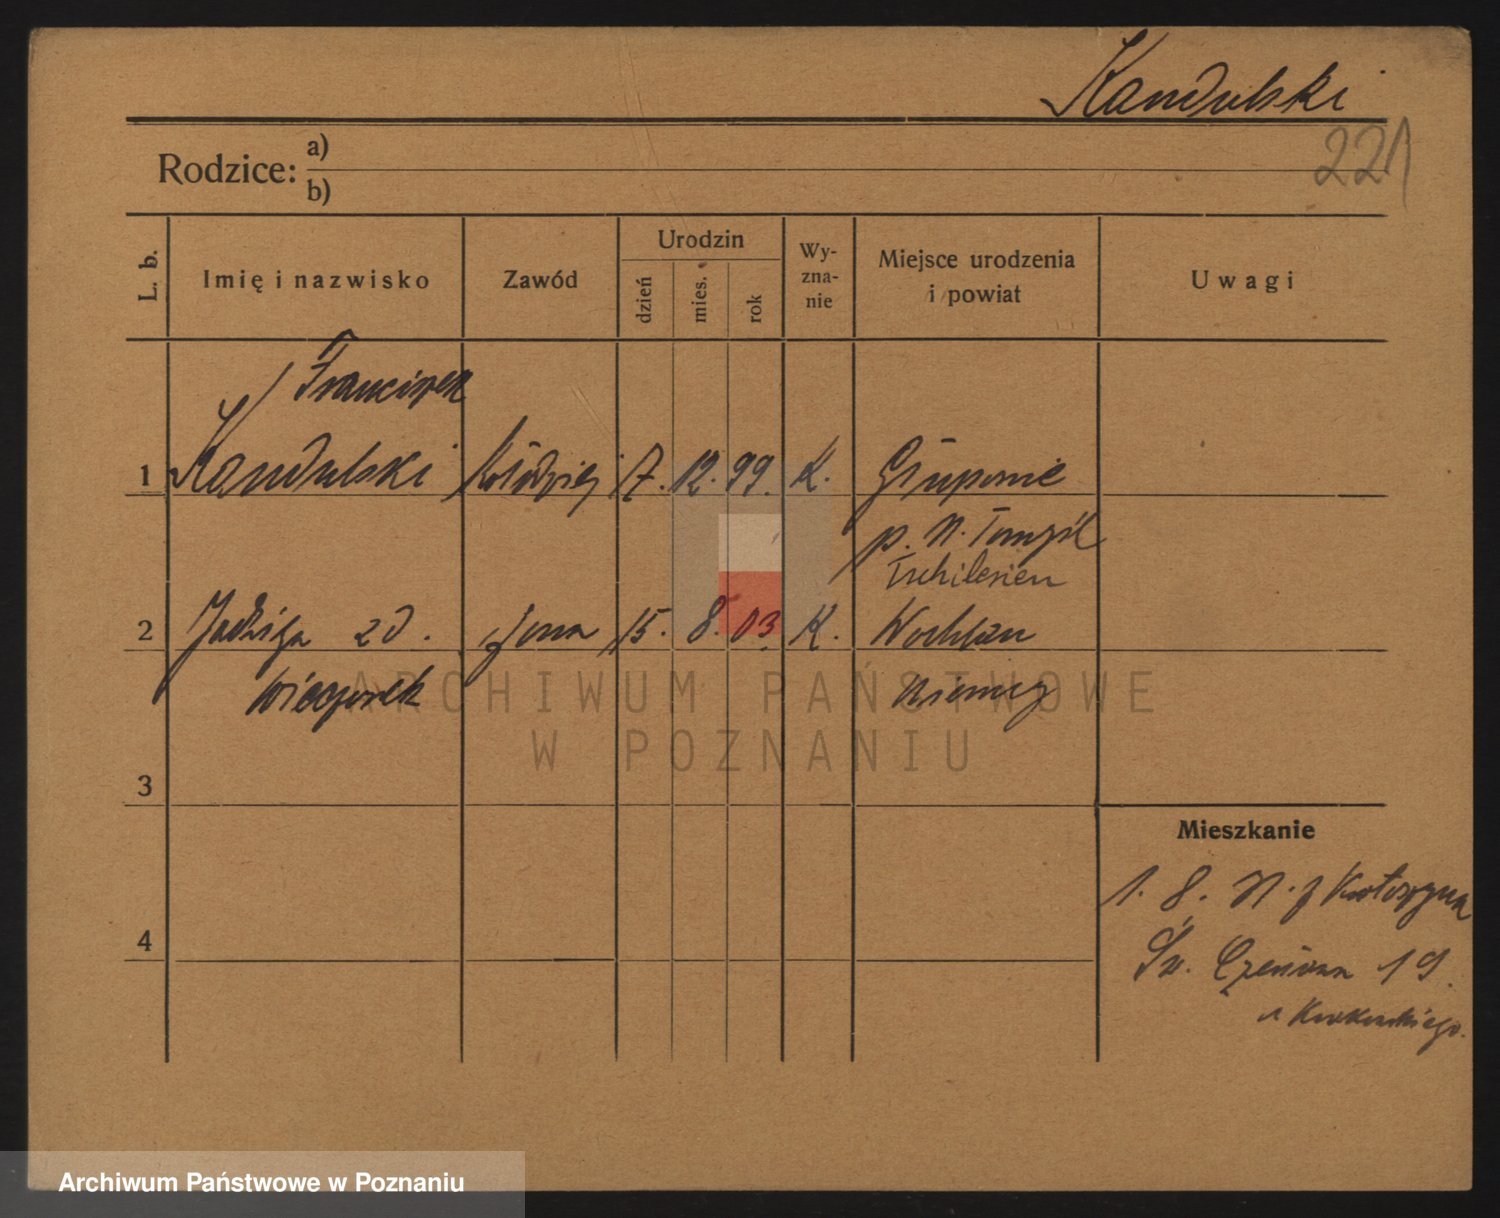 Kandulski
221
Rodzice: a)
b)
L. b.
Imię i nazwisko
Zawód
Urodzin
dzień
mies.
rok
Wy-
zna-
nie
Miejsce urodzenia
i powiat
Uwagi
Franciszek
1 Kandulski Kołodziej 17. 12. 99. K. Gruponie
p. N. Tomyśl
2 Jadwiga zd. żona 15. 8. 03. K. Wohlau
Wieczorek Niemcy
3
4
Mieszkanie
1. 8. z Krotoszyna
Św. Czesława 19.
u Krakowskiego.
ARCHIWUM PAŃSTWOWE
W POZNANIU
Archiwum Państwowe w Poznaniu